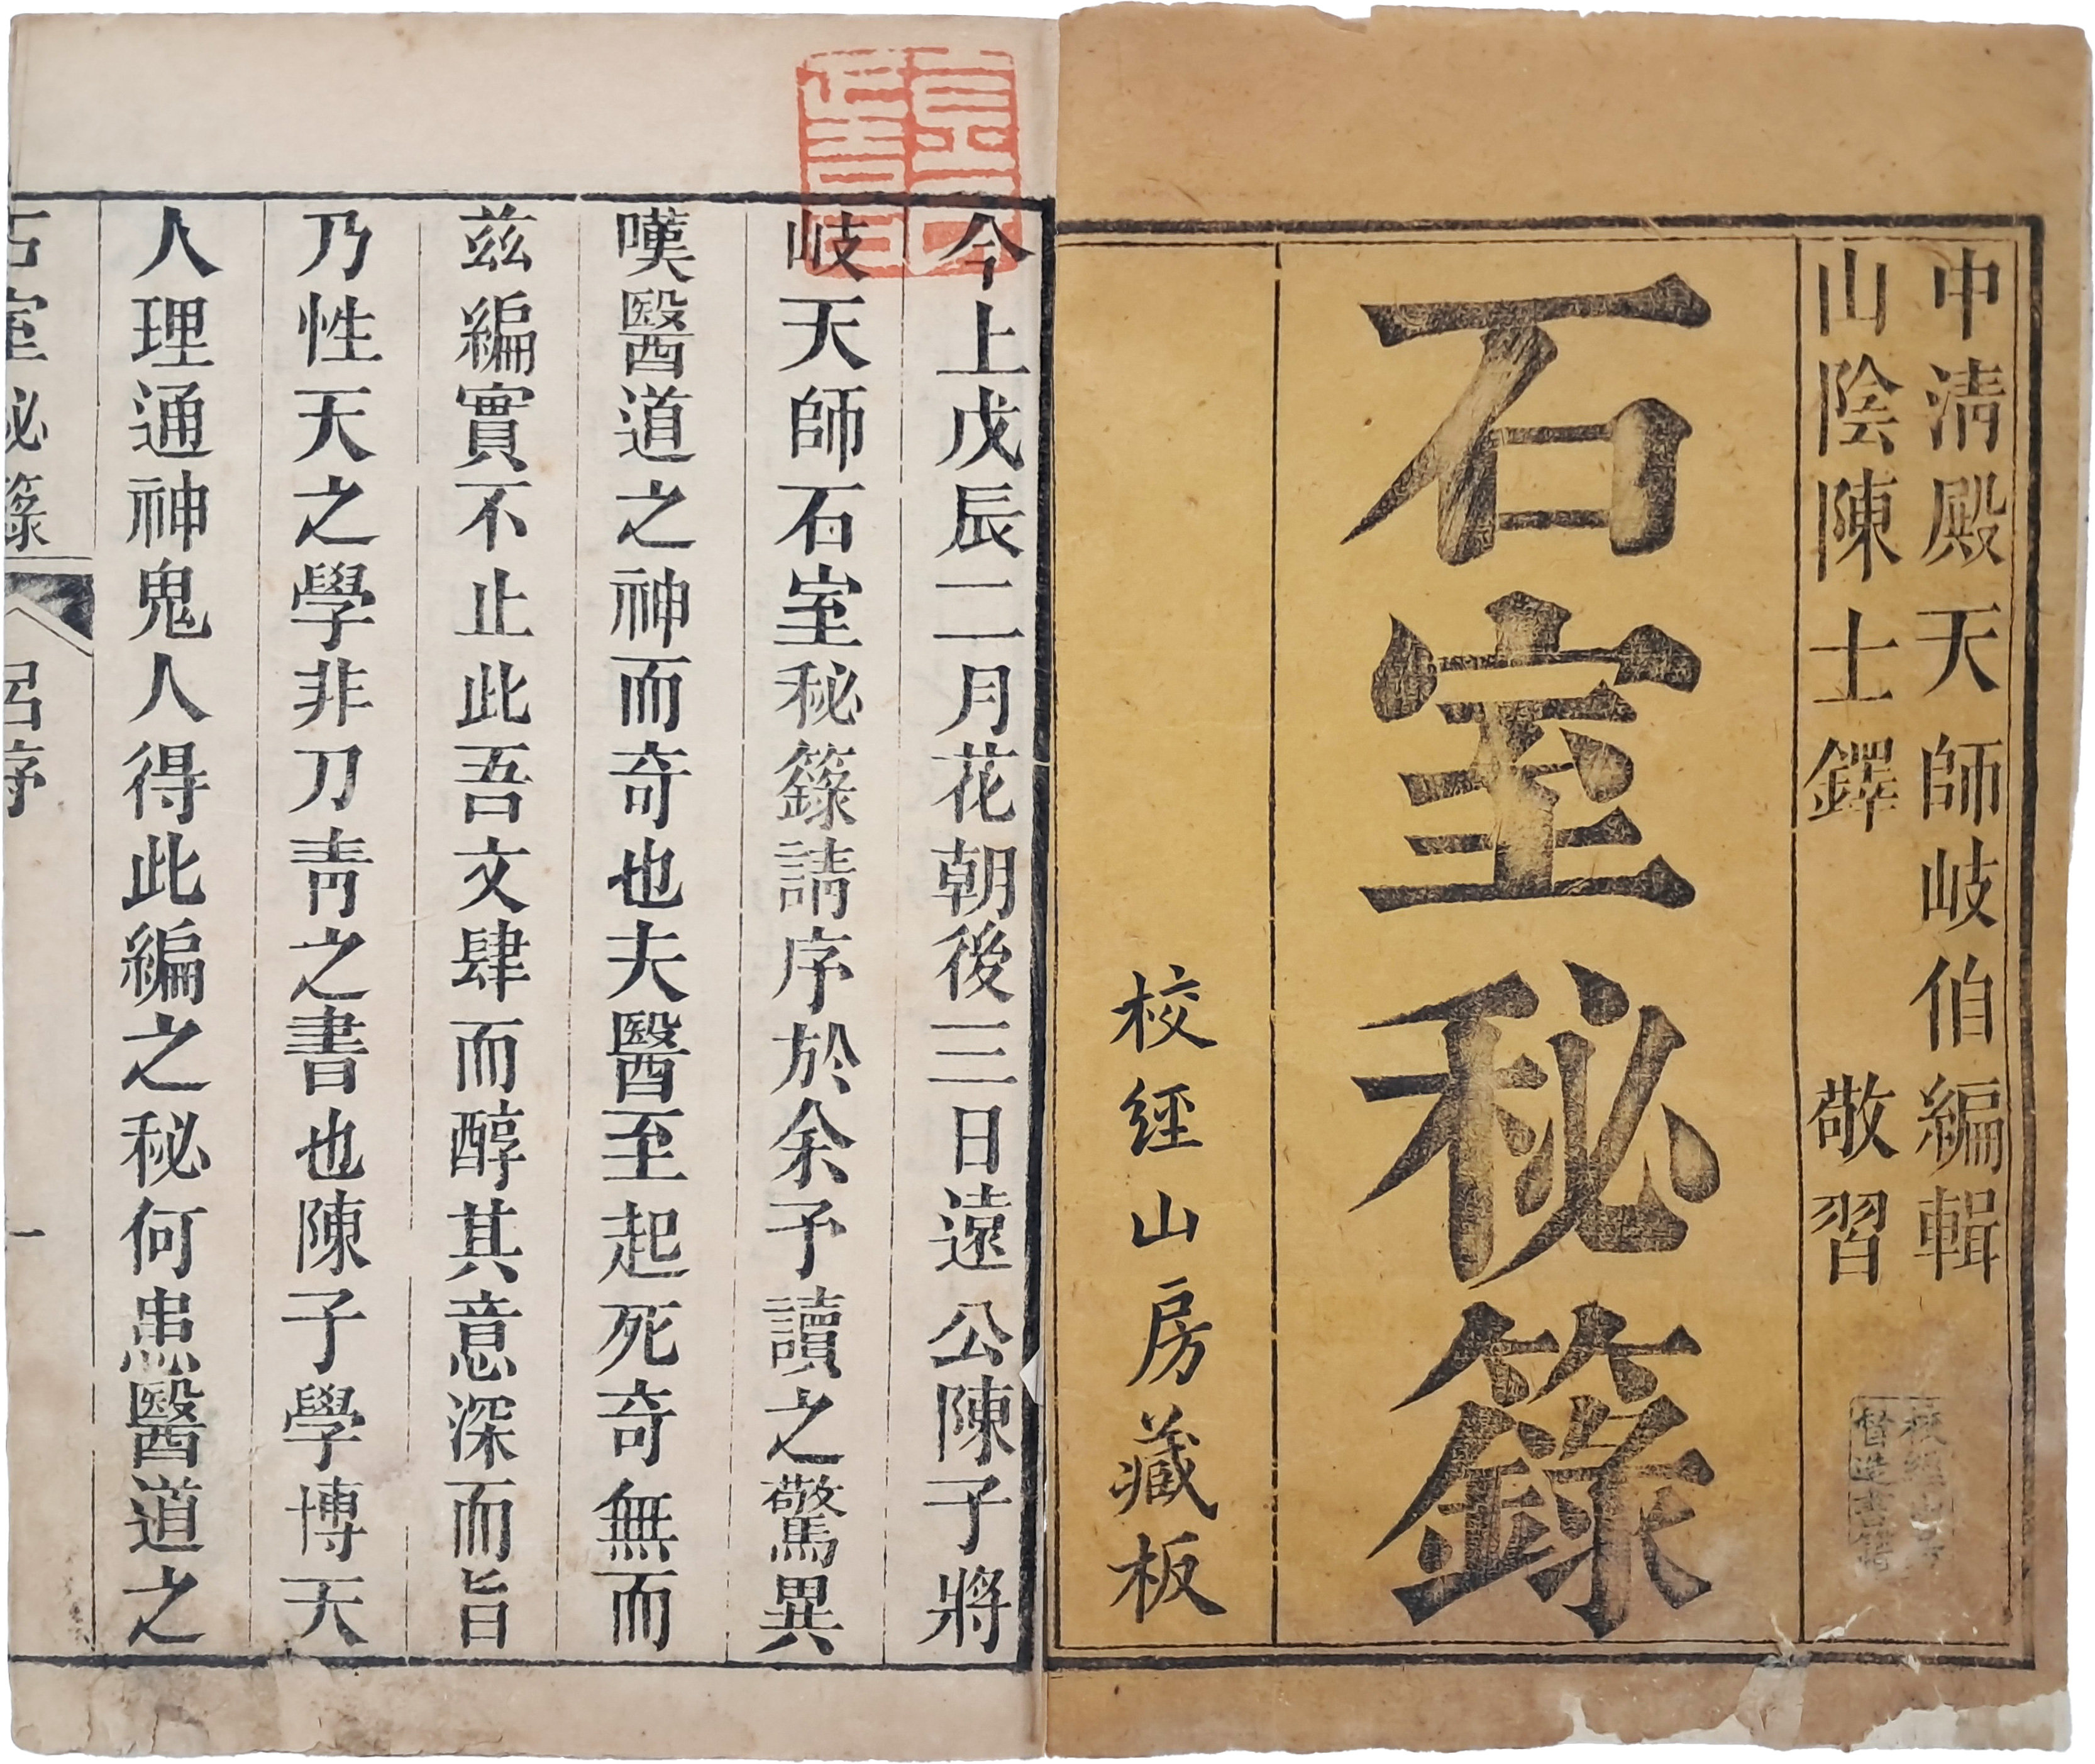 中清殿天師岐伯編輯
山陰陳士鐸 敬習
石室秘籙
校經山房藏板
今上戊辰二月花朝後三日遠公陳子將
岐天師石室秘籙請序於余予讀之驚異
嘆醫道之神而奇也夫醫至起死奇無而
茲編實不止此吾文肆而醇其意深而旨
乃性天之學非刀青之書也陳子學博天
人理通神鬼人得此編之秘何患醫道之
石室秘籙 呂序 一